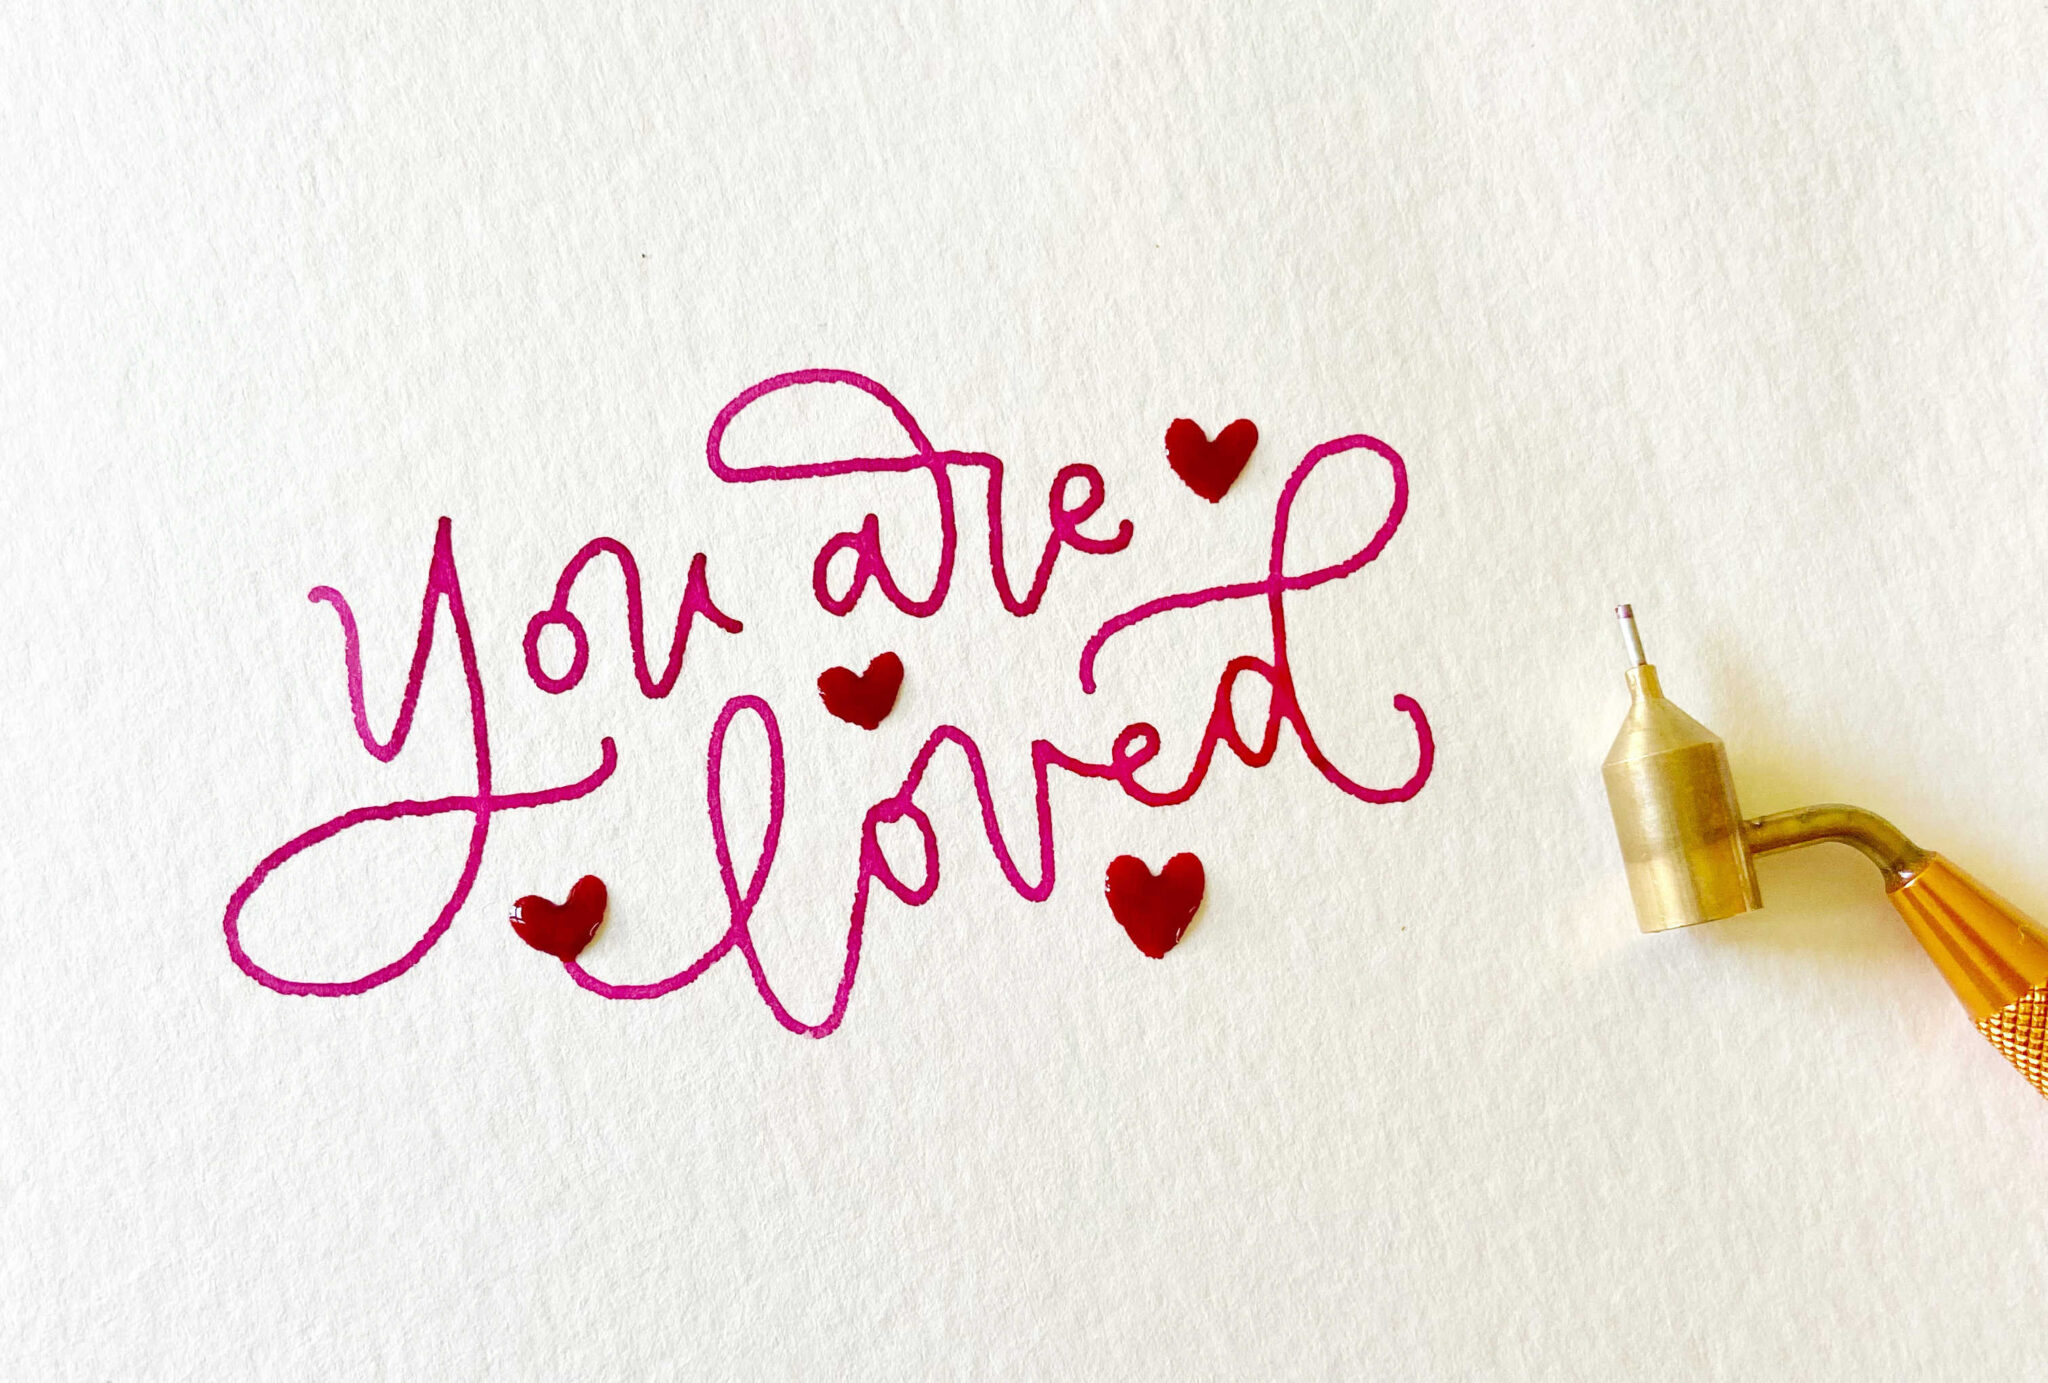 You are
loved